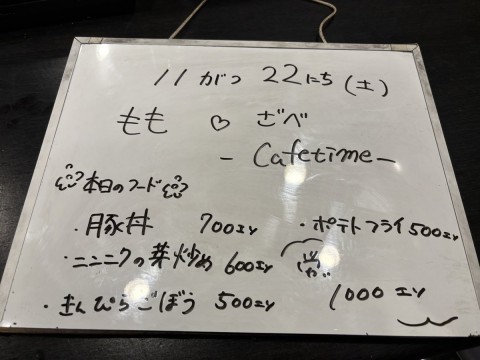 11がつ 22にち(土)
もも ♡ ざべ
- Cafetime -
本日のフード
・豚丼 700エン
・ポテトフライ 500エン
・ニンニクの芽炒め 600エン
・きんぴらごぼう 500エン
1000エン